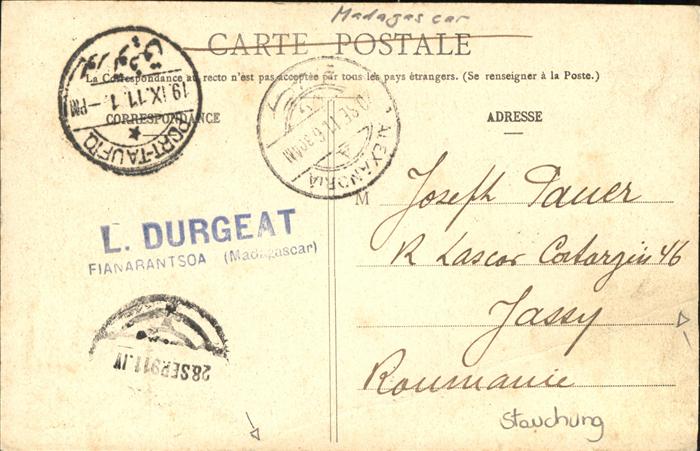 Madagascar
CARTE POSTALE
La Correspondance au recto n'est pas acceptée par tous les pays étrangers. (Se renseigner à la Poste.)
CORRESPONDANCE
ADRESSE
بور توفيق
19.IX.11.1-PM
PORT-TAUFIQ
ALEXANDRIA
M Joseph Pauer
R Lascar Catargiu 46
Jassy
Roumanie
L. DURGEAT
FIANARANTSOA (Madagascar)
28SEP911.IV
Stauchung